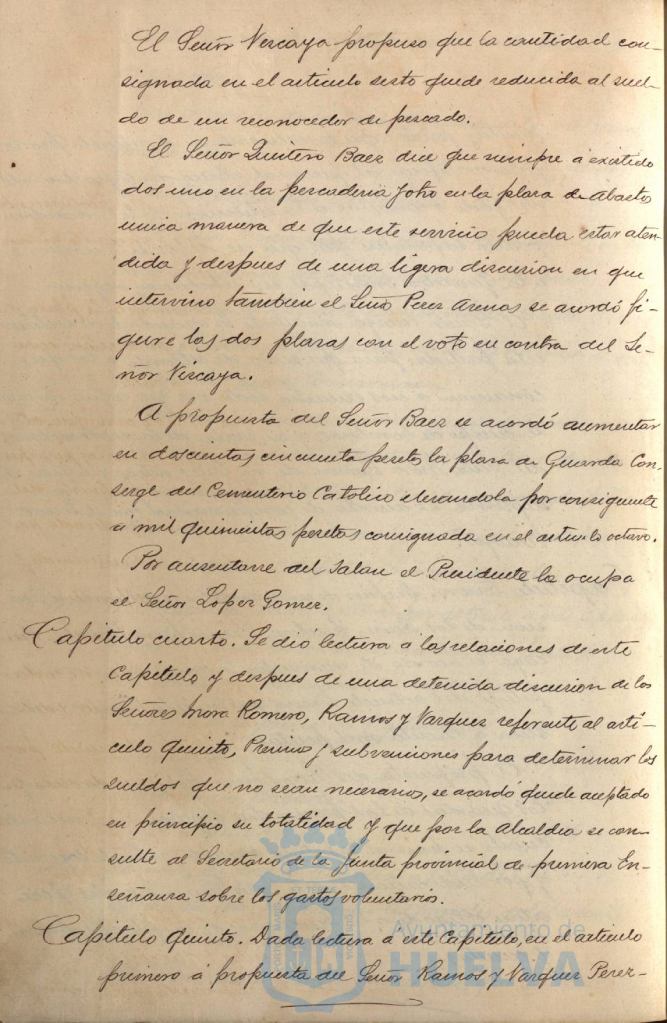 El Señor Vizcaya propuso que la cantidad con-
signada en el articulo sesto quede reducida al suel-
do de un reconocedor de pescado.
El Señor Quintero Baez dice que siempre á existido
dos uno en la pescaderia y otro en la plaza de Abasto
unica manera de que este servicio pueda estar aten-
dida y despues de una ligera discusion en que
intervino tambien el Señor Perez Arenas se acordó fi-
gure las dos plazas con el voto en contra del Se-
ñor Vizcaya.
A propuesta del Señor Baez se acordó aumentar
en doscientas cincuenta pesetas la plaza de Guarda Con-
serge del Cementerio Catolico elevandola por consiguiente
á mil quinientas pesetas consignada en el articulo octavo.
Por ausentarse del Salon el Presidente la ocupa
el Señor Lopez Gomez.
Capitulo cuarto. Se dió lectura á las relaciones de este
Capitulo, y despues de una detenida discusion de los
Señores Mora Romero, Ramos y Vazquez referente al artí-
culo Quinto, Premios y subvenciones para determinar los
sueldos que no sean necesarios, se acordó quede aceptado
en principio su totalidad y que por la Alcaldia se con-
sulte al Secretario de la Junta provincial de primera En-
señanza sobre los gastos voluntarios.
Capitulo Quinto. Dada lectura á este Capitulo, en el articulo
primero á propuesta del Señor Ramos y Vazquez Perez-
Ayuntamiento de
HUELVA